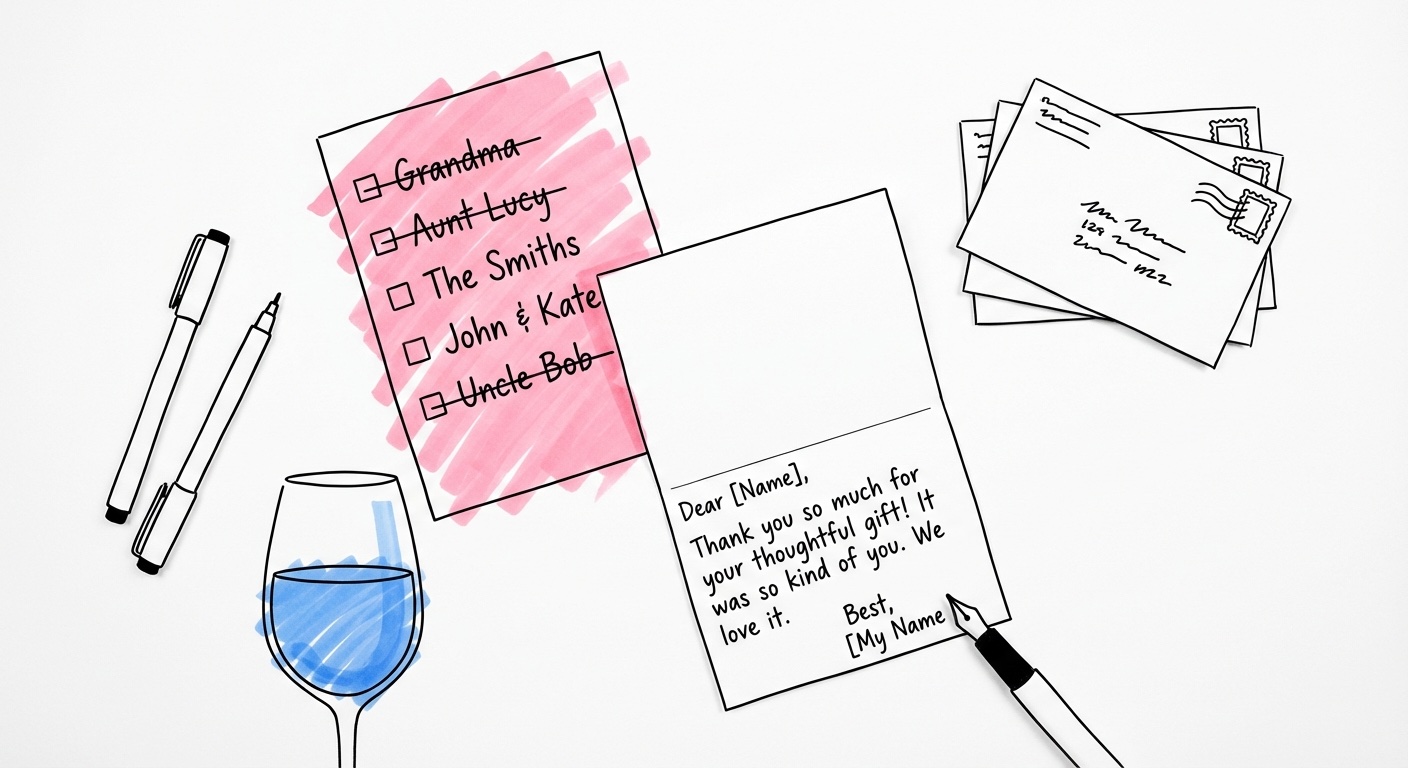 Grandma
Aunt Lucy
The Smiths
John & Kate
Uncle Bob
Dear [Name],
Thank you so much for
your thoughtful gift! It
was so kind of you. We
love it.
Best,
[My Name